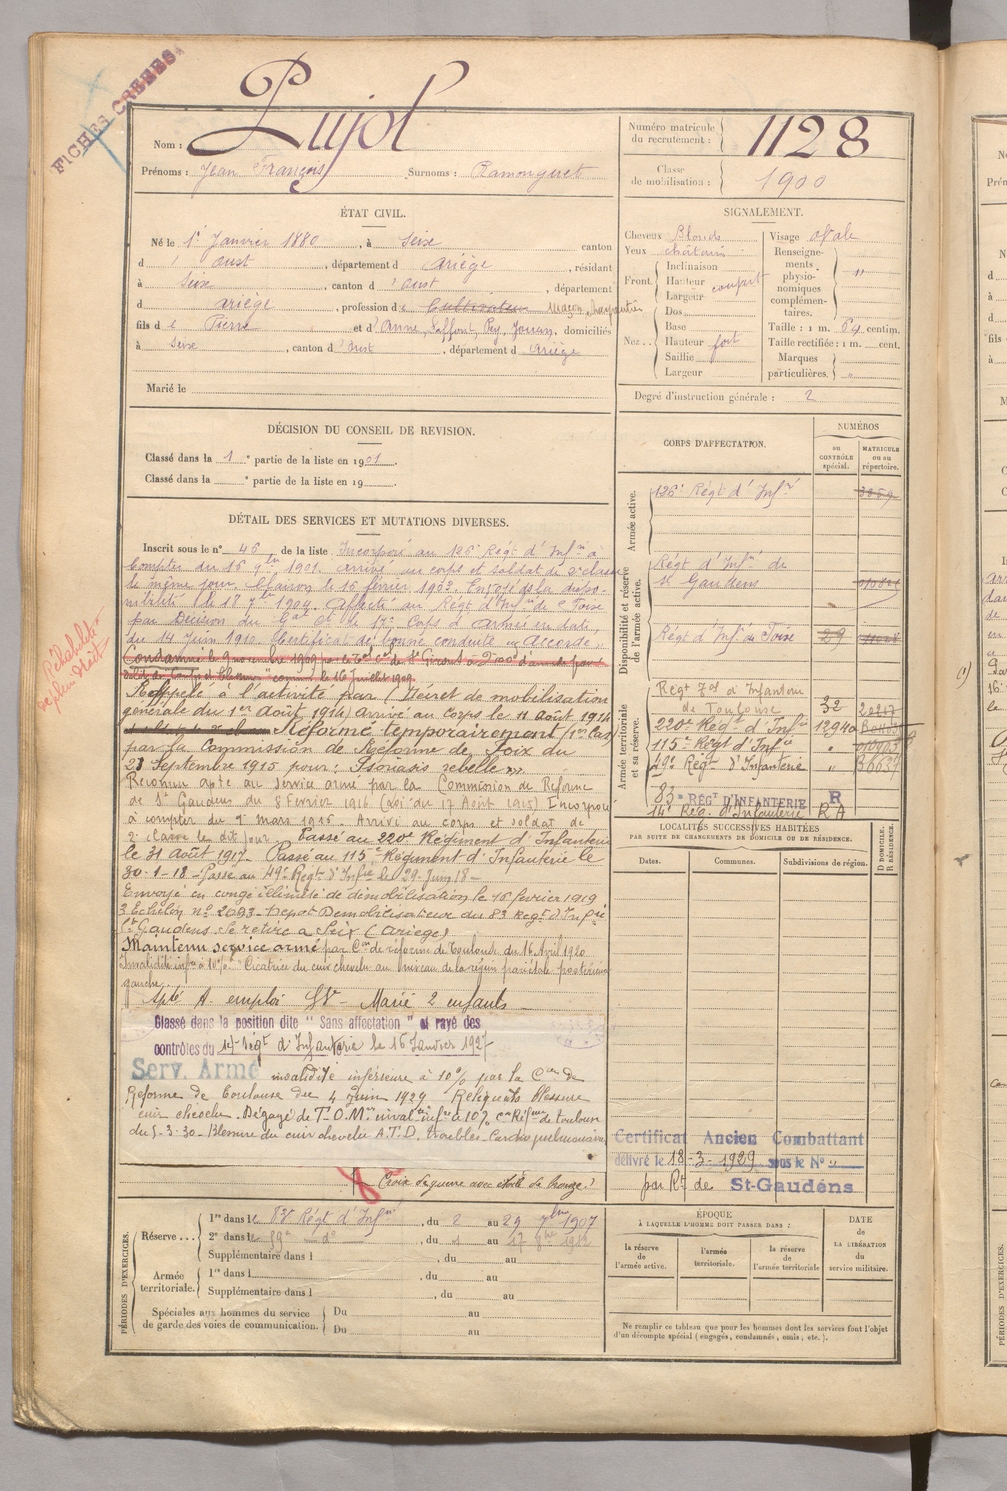 FICHES CRÉÉES
Nom : Pujol
Prénoms : Jean François Surnoms : Ramonguet
Numéro matricule du recrutement : 1128
Classe de mobilisation : 1900
ÉTAT CIVIL.
Né le 1er Janvier 1880, à Seix canton
d' oust, département d Ariège, résidant
à Seix, canton d' Oust, département
d Ariège, profession d e Cultivateur Maçon, charpentier
fils d e Pierre et d' Anne, Saffont, Rey, Jouan, domiciliés
à Seix, canton d' Oust, département d Ariège
Marié le
SIGNALEMENT.
Cheveux Blonds
Yeux châtain
Front. Inclinaison
Hauteur
Largeur
Nez.. Dos
Base
Hauteur fort
Saillie
Largeur
Visage ovale
Renseignements physionomiques complémentaires. "
Taille : 1 m. 64 centim.
Taille rectifiée : 1 m. cent.
Marques particulières. "
Degré d'instruction générale : 2
DÉCISION DU CONSEIL DE REVISION.
Classé dans la 1 e partie de la liste en 1901.
Classé dans la e partie de la liste en 19 .
DÉTAIL DES SERVICES ET MUTATIONS DIVERSES.
Inscrit sous le n° 46 de la liste. Incorporé au 126e Régt d' Infie à
compter du 16 9bre 1901. arrivé au corps et soldat de 2e classe
le même jour. Clairon le 15 février 1903. Envoyé dans la dispo-
nibilité le 18 7bre 1904. Affecté au Régt d'Infie de Foix
par décision du Gal Ct le 17e Corps d'Armée en date
du 14 Juin 1910. Certificat de bonne conduite "Accordé"
Condamné le 9 novembre 1909 par le de St Girons à d'amende pour
délit de commis le 16 Juillet 1909.
Réhabilité de plein droit
Rappelé à l'activité par (Décret de mobilisation
générale du 1er Août 1914) arrivé au corps le 11 Août 1914
Réformé temporairement (1er Cas)
par la Commission de Réforme de Foix du
23 Septembre 1915 pour : Psoriasis rebelle »
Reconnu apte au service armé par la Commission de Réforme
de St Gaudens du 8 Février 1916 (Loi du 17 Août 1915) Incorporé
à compter du mars 1916. Arrivé au corps et soldat de
2e classe le dit jour. Passé au 220e Régiment d'Infanterie
le 31 Août 1917. Passé au 115e Régiment d'Infanterie le
30-1-18 - Passé au 49e Régt d'Infie le 29-Juin 18-
Envoyé en congé illimité de démobilisation le 15 février 1919
3 Echelon n° 2093 - Dépôt Démobilisateur du 83 Régt d'Infie
St Gaudens. Se retire à Seix (Ariège)
Maintenu service armé par Con de réforme de Toulouse du 16 Avril 1920
Invalidité infre à 10%. Cicatrice du cuir chevelu au niveau de la région pariétale postérieure
gauche.
Apte A. emploi Marié 2 enfants
Classé dans la position dite " Sans affectation " et rayé des
contrôles du 14e régt d'Infanterie le 16 Janvier 1927
Serv. Armé invalidité inférieure à 10% par la Con de
Réforme de Toulouse du 4 Juin 1929 Reliquats Blessure
cuir chevelu. Dégagé de T.O.M. inval té infre à 10% Cn Réfme de Toulouse
du 5-3-30 - Blessure du cuir chevelu A.T.D. troubles Cardio pulmonaires
Croix de guerre avec étoile de bronze
CORPS D'AFFECTATION.
NUMÉROS
au CONTRÔLE spécial.
MATRICULE ou au répertoire.
Armée active.
126e Régt d' Infie
Disponibilité et réserve de l'armée active.
Régt d' Infie de
St Gaudens
Régt d' Infie de Foix 29
Armée territoriale et sa réserve.
Régt Tal d' Infanterie
de Toulouse 32
220e Régt d' Infie 12940
115e Régt d' Infie "
49e Régt d'Infanterie "
83e RÉGT D'INFANTERIE R
14e Rég. d'Infanterie R A
LOCALITÉS SUCCESSIVES HABITÉES
PAR SUITE DE CHANGEMENTS DE DOMICILE OU DE RÉSIDENCE.
Dates.
Communes.
Subdivisions de région.
D DOMICILE. R RÉSIDENCE.
Certificat Ancien Combattant
délivré le 18-3-1929 sous le N° "
par Rt de St-Gaudens
PÉRIODES D'EXERCICES.
Réserve ...
1re dans le 88e Régt d' Infie, du 2 au 29 7bre 1907
2e dans le 59e do, du 1 au 17 8bre 1912
Supplémentaire dans l , du au
Armée territoriale.
1re dans l , du au
Supplémentaire dans l , du au
Spéciales aux hommes du service
de garde des voies de communication.
Du au
Du au
ÉPOQUE
À LAQUELLE L'HOMME DOIT PASSER DANS :
la réserve de l'armée active.
l'armée territoriale.
la réserve de l'armée territoriale
DATE DE LA LIBÉRATION du service militaire.
Ne remplir ce tableau que pour les hommes dont les services font l'objet
d'un décompte spécial (engagés, condamnés, omis, etc.).